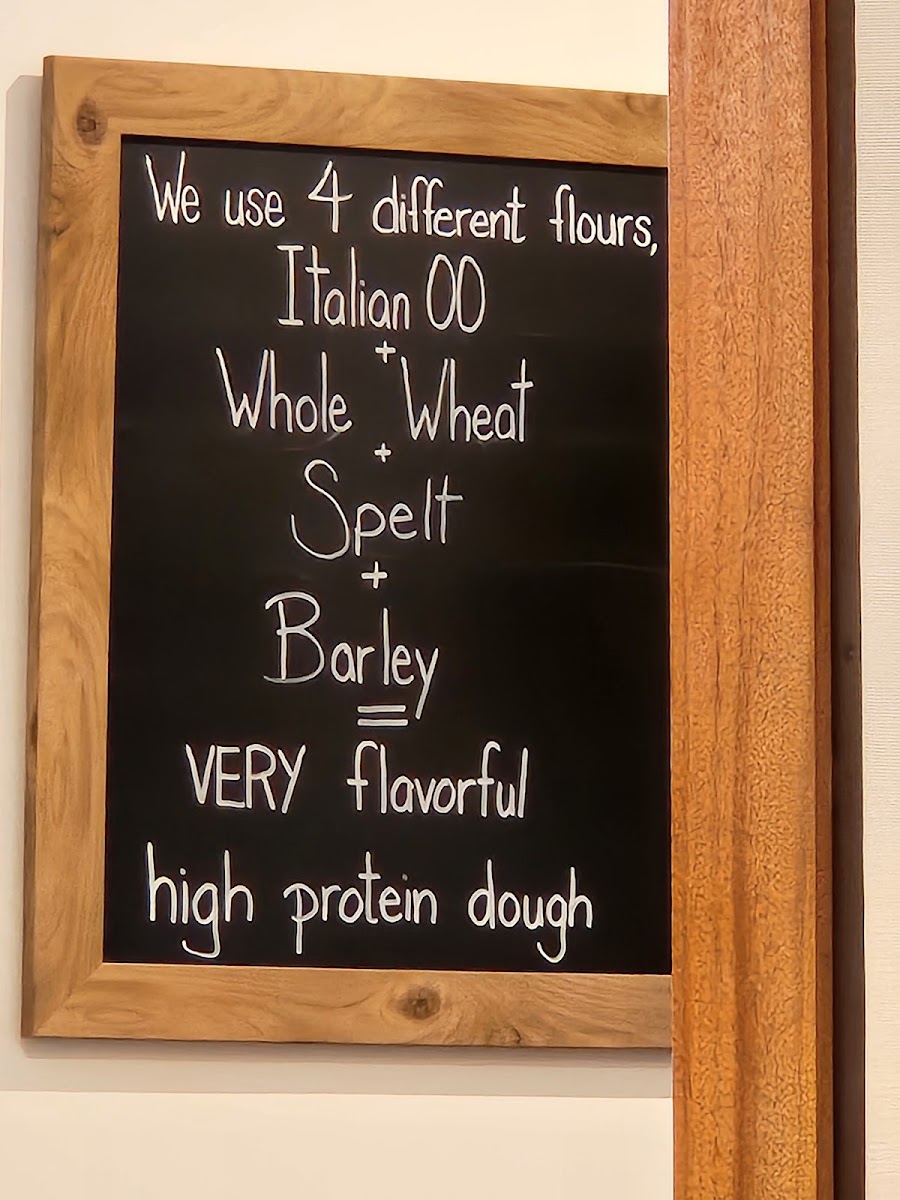 We use 4 different flours,
Italian 00
+
Whole Wheat
+
Spelt
+
Barley
=
VERY flavorful
high protein dough